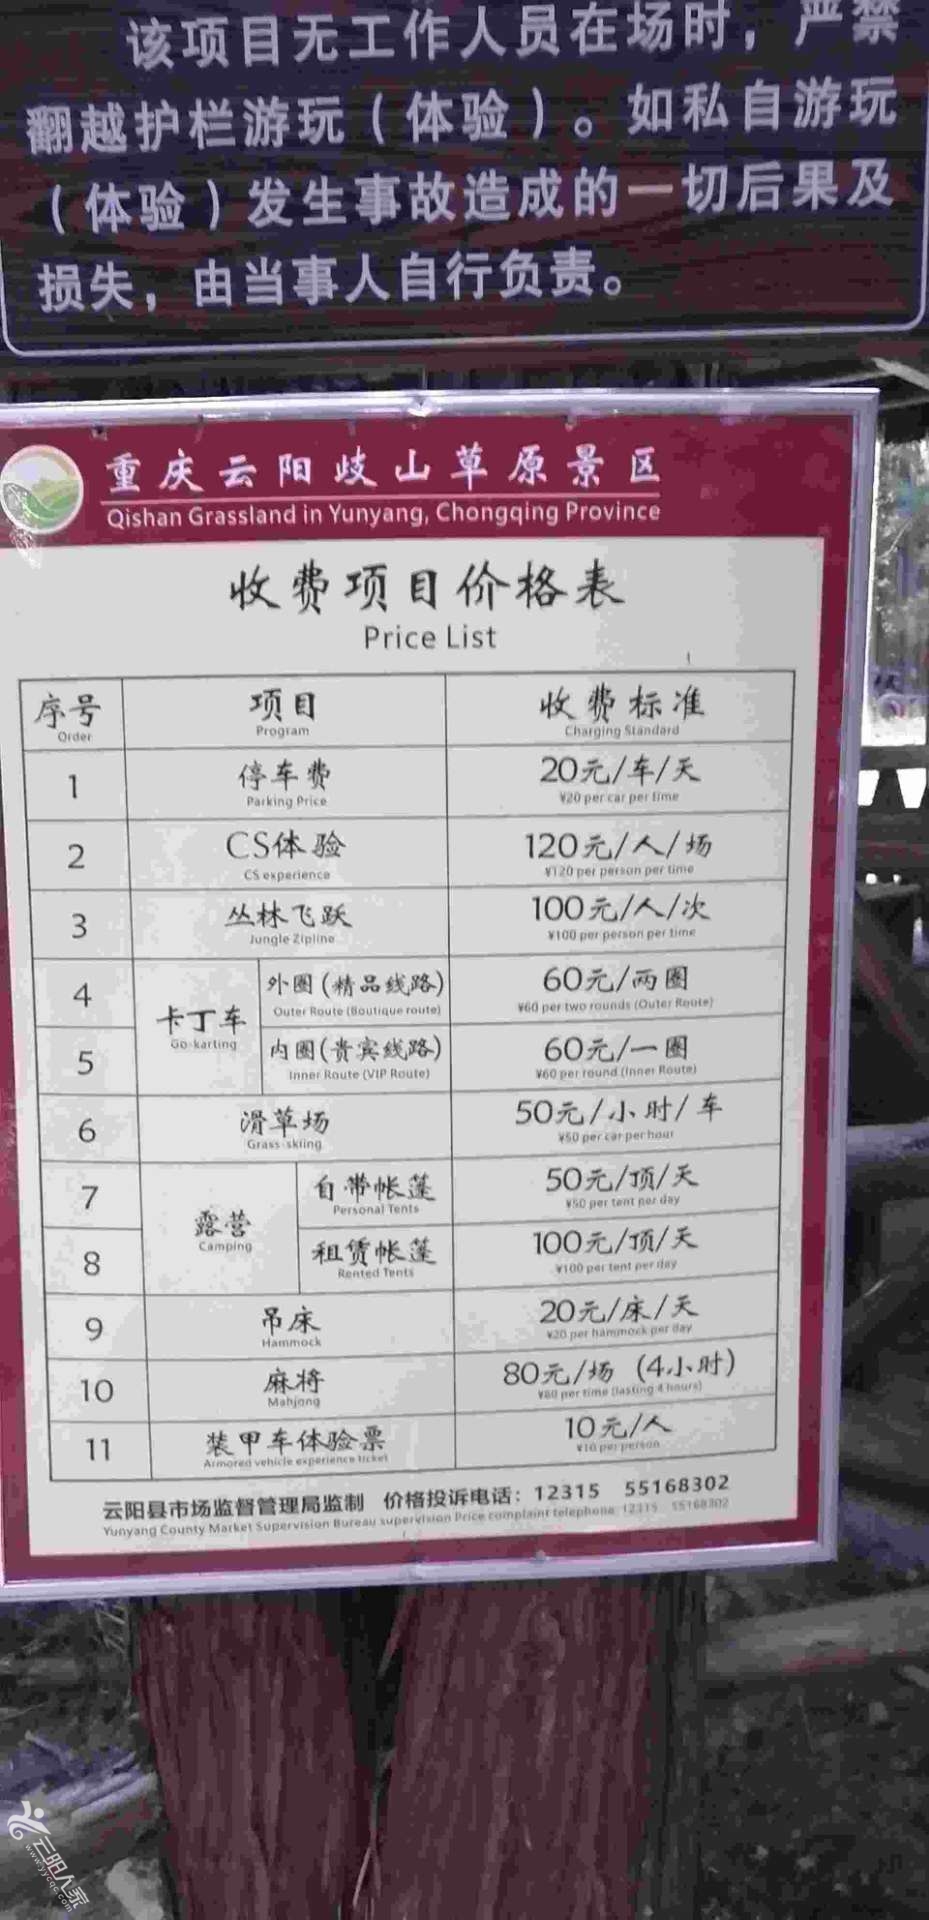 该项目无工作人员在场时，严禁
翻越护栏游玩（体验）。如私自游玩
（体验）发生事故造成的一切后果及
损失，由当事人自行负责。
重庆云阳歧山草原景区
Qishan Grassland in Yunyang, Chongqing Province
收费项目价格表
Price List
序号 项目 收费标准
Order Program Charging Standard
1 停车费 20元/车/天
Parking Price ¥20 per car per time
2 CS体验 120元/人/场
CS experience ¥120 per person per time
3 丛林飞跃 100元/人/次
Jungle Zipline ¥100 per person per time
4 外圈(精品线路) 60元/两圈
Outer Route (Boutique route) ¥60 per two rounds (Outer Route)
卡丁车
Go-karting
5 内圈(贵宾线路) 60元/一圈
Inner Route (VIP Route) ¥60 per round (Inner Route)
6 滑草场 50元/小时/车
Grass-skiing ¥50 per car per hour
7 自带帐篷 50元/顶/天
Personal Tents ¥50 per tent per day
露营
Camping
8 租赁帐篷 100元/顶/天
Rented Tents ¥100 per tent per day
9 吊床 20元/床/天
Hammock ¥20 per hammock per day
10 麻将 80元/场（4小时）
Mahjong ¥80 per time (lasting 4 hours)
11 装甲车体验票 10元/人
Armored vehicle experience ticket ¥10 per person
云阳县市场监督管理局监制 价格投诉电话：12315 55168302
Yunyang County Market Supervision Bureau supervision Price complaint telephone: 12315 55168302
云阳人家
www.yycqc.com